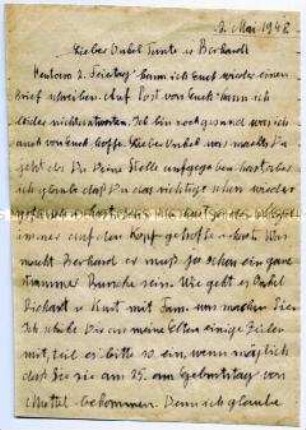 2. Mai 1948
Lieber Onkel Tante u Berhardt
Heute am 2. Feiertag kann ich Euch wieder einen
Brief schreiben. Auf Post von Euch kann ich
leider nicht antworten. Ich bin noch gesund was ich
auch von Euch hoffe. Lieber Onkel was machst Du
jetzt da Du Deine Stelle aufgegeben hast aber
ich glaube daß Du das richtige schon wieder
immer auf den Kopf getroffen hast. Was
macht Berhard er muß ja schon ein ganz
strammer Bursche sein. Wie geht es Onkel
Richart u Kurt mit Fam. was machen Sie.
Ich schicke Dir an meine Eltern einige Zeilen
mit, teil es bitte so ein, wenn möglich
daß Sie sie am 25. am Geburtstag von
Muttel bekommen. Denn ich glaube